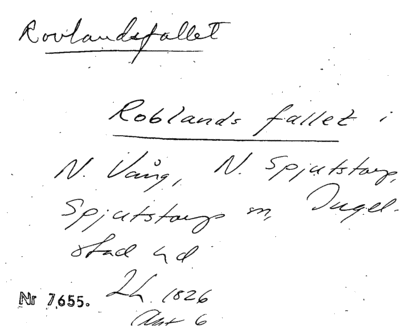 Rovlandsfallet
Roblands fallet i
N. Vång, N. Spjutstorp,
Spjutstorps m, Ingel-
stad hd.
Lh. 1826
Akt 6
Nr 7655.